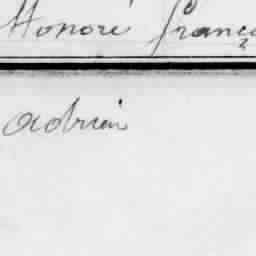 Honoré franç
adrien